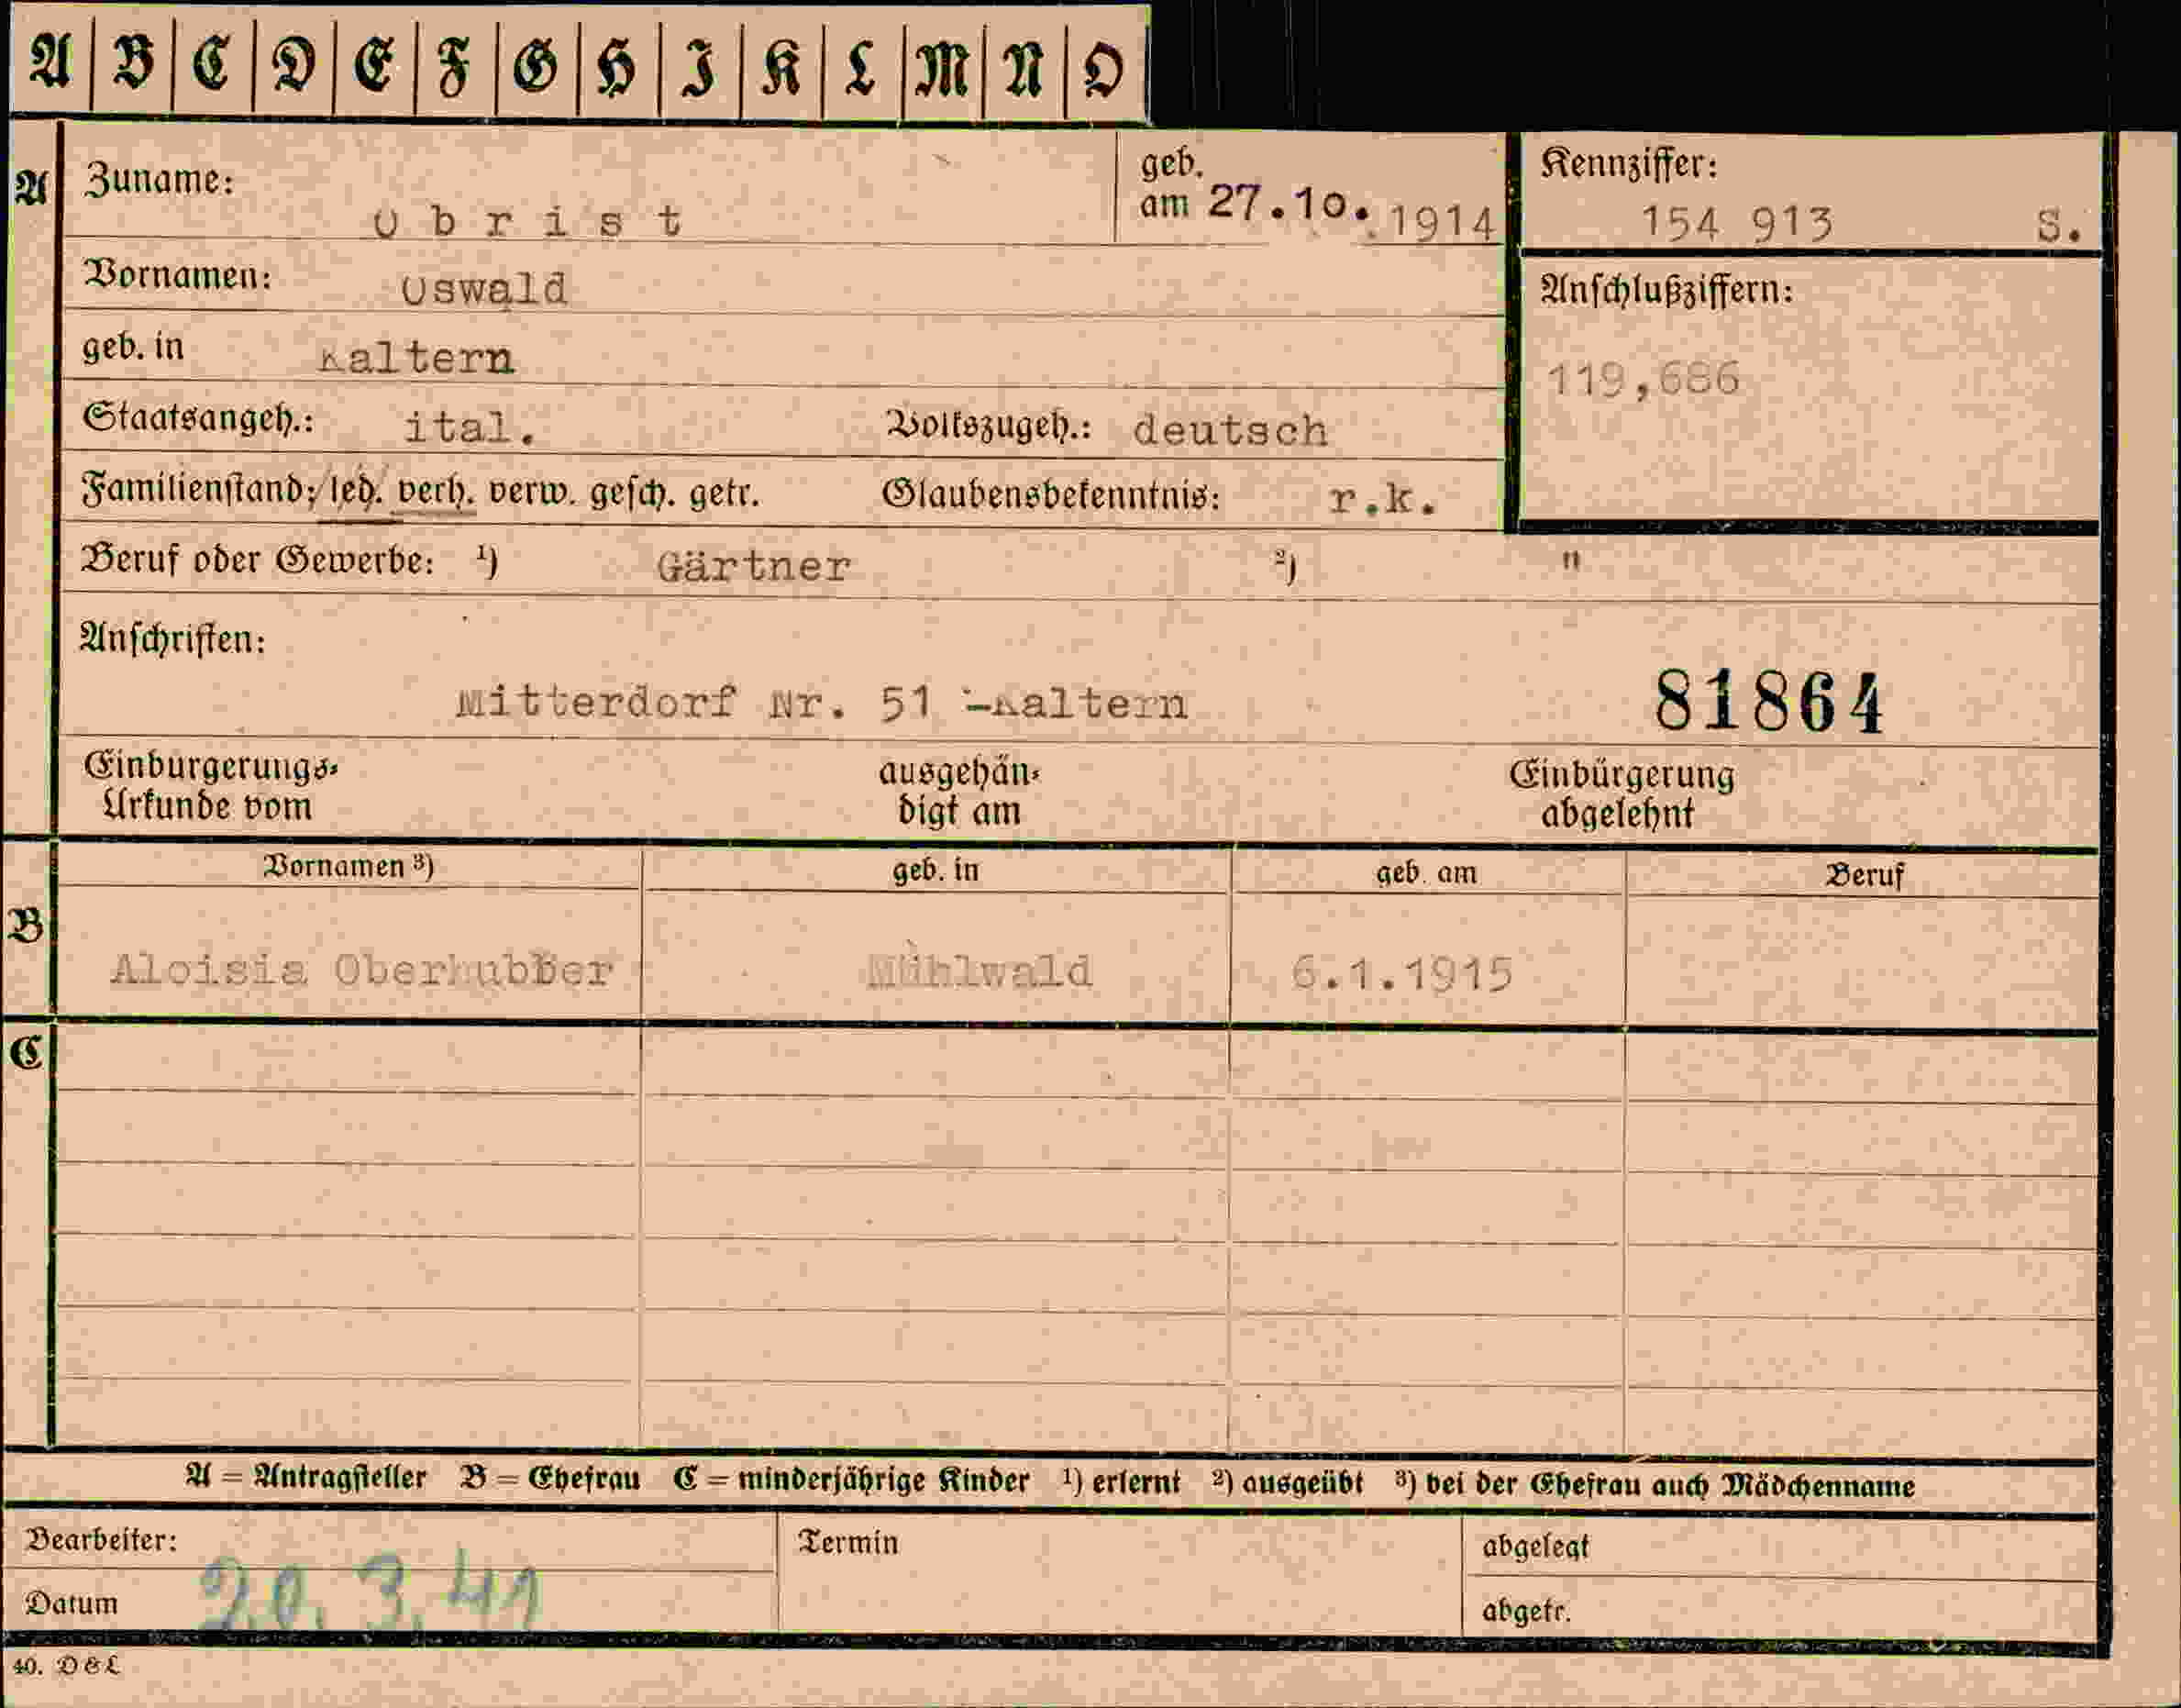 A B C D E F G H I K L M N O
A Zuname: Obrist geb. am 27.10.1914 Kennziffer: 154 913 S.
Vornamen: Oswald Anschlußziffern:
geb. in Kaltern 119,686
Staatsangeh.: ital. Volkszugeh.: deutsch
Familienstand: led. verh. verw. gesch. getr. Glaubensbekenntnis: r.k.
Beruf oder Gewerbe: ¹) Gärtner ²) "
Anschriften:
Mitterdorf Nr. 51 -Kaltern 81864
Einbürgerungs- ausgehän- Einbürgerung
Urkunde vom digt am abgelehnt
Vornamen ³) geb. in geb. am Beruf
B Aloisia Oberhubber Mühlwald 6.1.1915
C
A = Antragsteller B = Ehefrau C = minderjährige Kinder ¹) erlernt ²) ausgeübt ³) bei der Ehefrau auch Mädchenname
Bearbeiter: Termin abgelegt
Datum 20.3.41 abgetr.
40. D & L